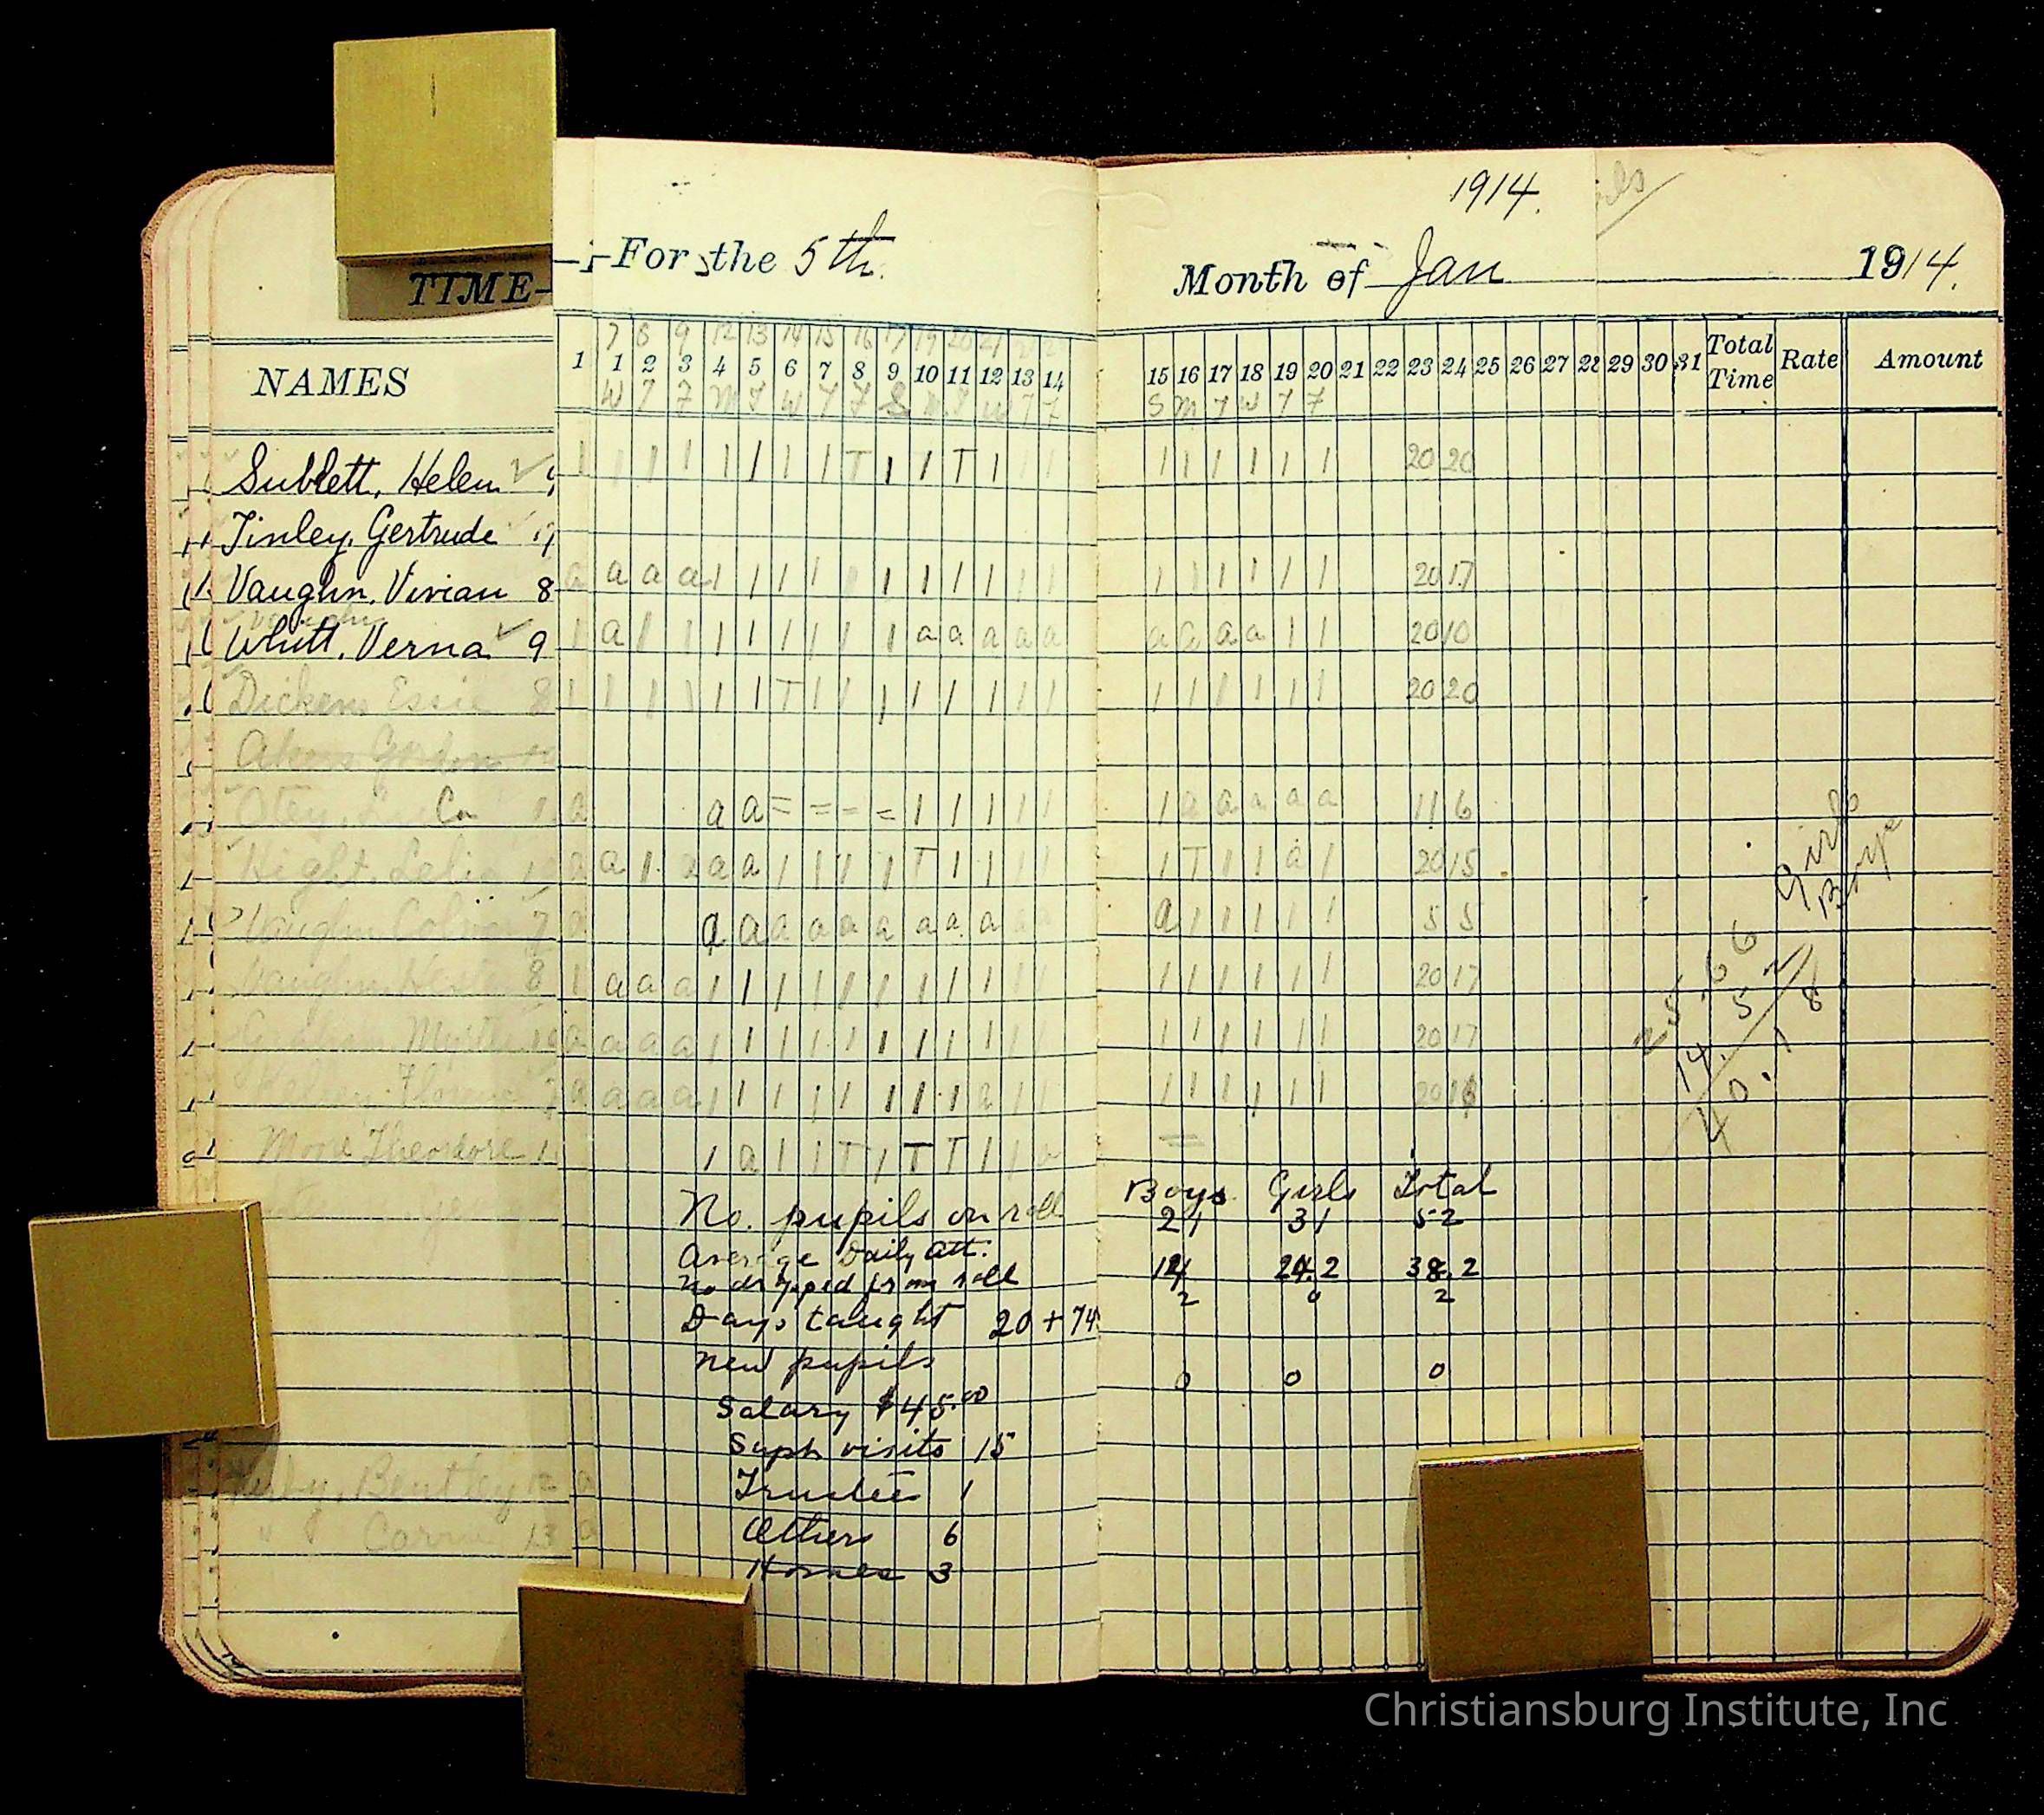 1914.
TIME- For the 5th. Month of Jan 1914.
7 8 9 12 13 14 15 16 17 19 20 21
NAMES 1 1 2 3 4 5 6 7 8 9 10 11 12 13 14 15 16 17 18 19 20 21 22 23 24 25 26 27 28 29 30 31 Total Time Rate Amount
W T F M T W T F S M T W T F S M T W T F
Sublett, Helen 1 1 1 1 1 1 1 1 T 1 1 T 1 1 1 1 1 1 1 1 1 20 20
Tinley, Gertrude
Vaughn, Vivian 8 a a a a 1 1 1 1 1 1 1 1 1 1 1 1 1 1 1 1 20 17
Whitt, Verna 9 1 a 1 1 1 1 1 1 1 1 a a a a a a a a a 1 1 20 10
Dickens Essie 8 1 1 1 1 1 1 T 1 1 1 1 1 1 1 1 1 1 1 1 1 1 20 20
Akers Gordon
Otey, Co a a a = = = = 1 1 1 1 1 1 a a a a a 11 6
Hight, Lelia a a 1 a a a 1 1 1 1 T 1 1 1 1 1 T 1 1 a 1 20 15
Vaughn Calvin 7 a a a a a a a a a a a 1 1 1 1 1 5 5
Vaughn, Hester 8 1 a a a 1 1 1 1 1 1 1 1 1 1 1 1 1 1 1 1 1 20 17
Graham Myrtle 10 a a a a 1 1 1 1 1 1 1 1 1 1 1 1 1 1 1 1 1 20 17
Kelsey, Florence 7 a a a a 1 1 1 1 1 1 1 1 a 1 1 1 1 1 1 1 1 20 16
More Theodore 1 a 1 1 T 1 T T 1 1 a =
Boys Girls Total
No. pupils on roll 21 31 52
Average Daily Att. 14 24.2 38.2
No dropped from roll 2 0 2
Days taught 20 + 74
new pupils 0 0 0
Salary $45.00
Supt. visits 15
Trustee 1
Others 6
Homes 3
Bentley 12 a
" " Carrie 13 a
Girls
Boys
25.66
14.52
40.18
Christiansburg Institute, Inc